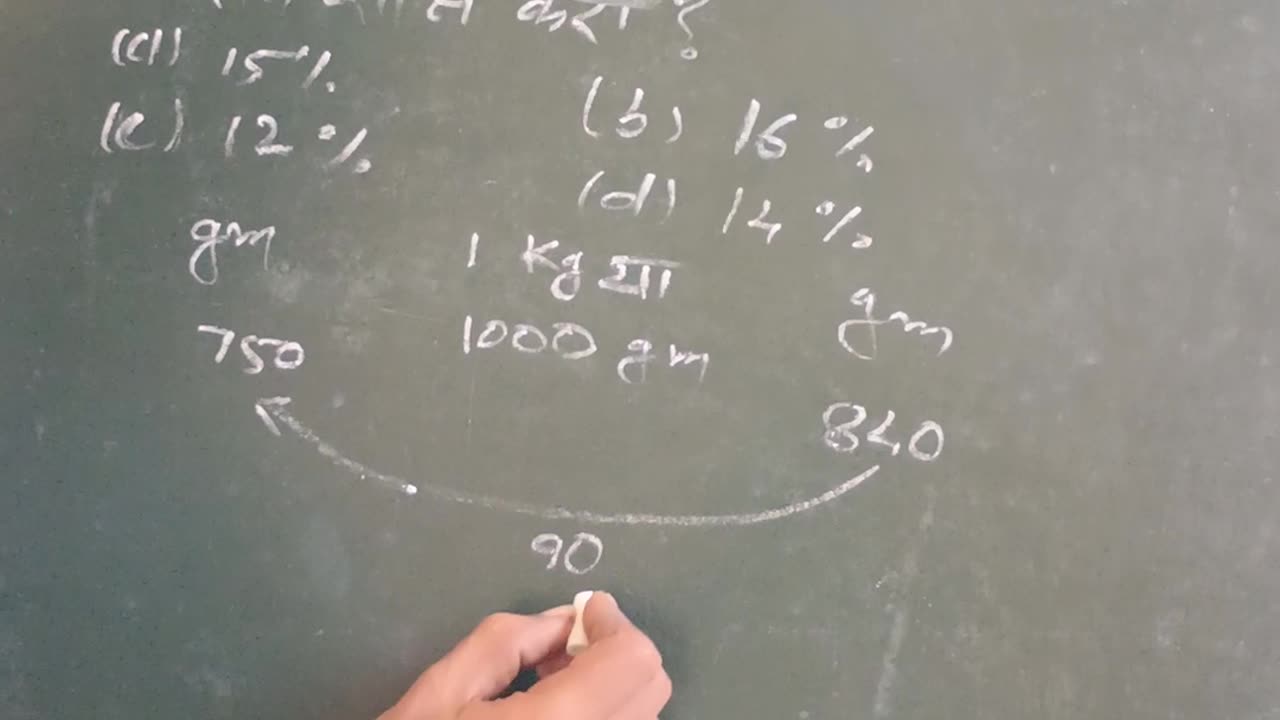 करता ?
(a) 15%
(b) 16%
(c) 12%
(d) 14%
gm 1 Kg या gm
750 1000 gm 840
90